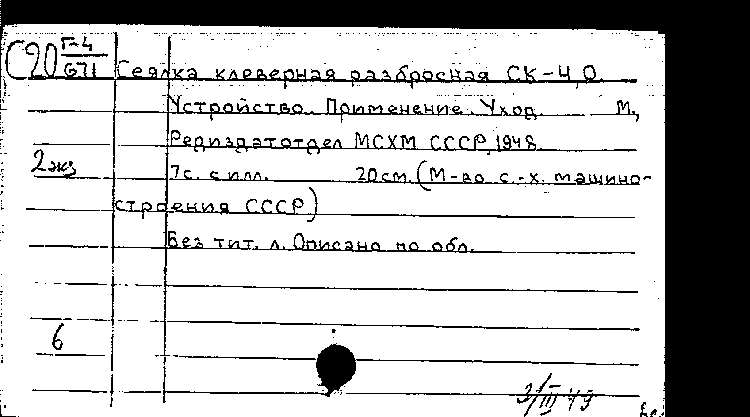 С20 Г-4
G71 Сеялка клеверная разбросная СК-4,0.
Устройство. Применение. Уход. М.,
Редиздатотдел МСХМ СССР, 1948.
2 экз 7с. с илл. 20см. (М-во с.-х. машино-
строения СССР)
Без тит. л. Описано по обл.
6
3/III 49